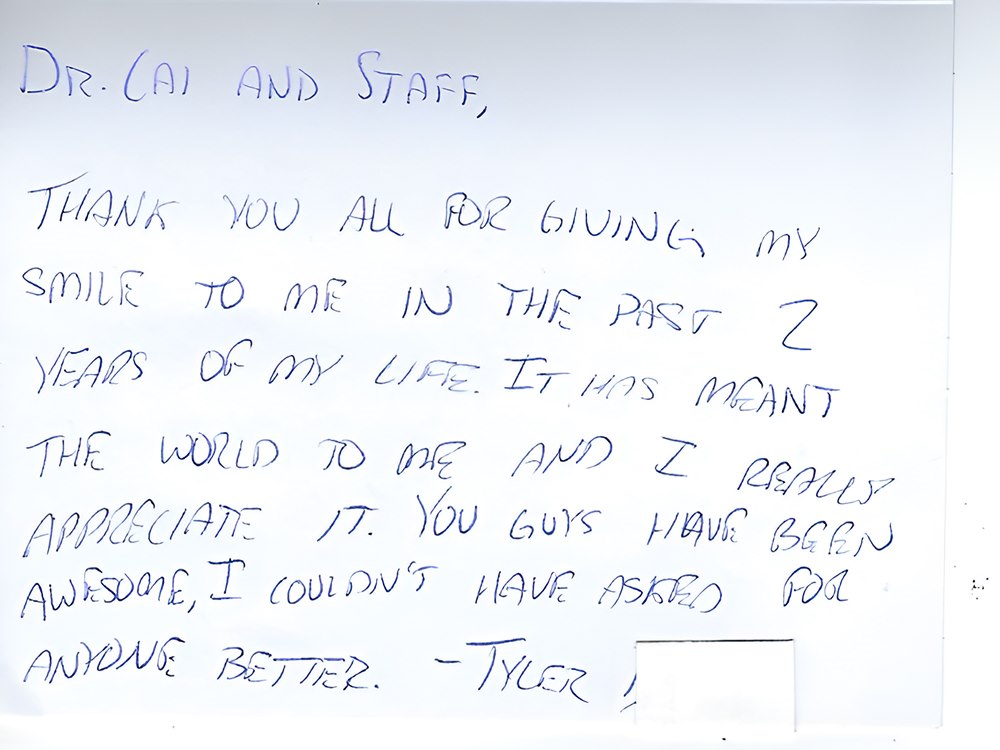 DR. CAI AND STAFF,
THANK YOU ALL FOR GIVING MY
SMILE TO ME IN THE PAST 2
YEARS OF MY LIFE. IT HAS MEANT
THE WORLD TO ME AND I REALLY
APPRECIATE IT. YOU GUYS HAVE BEEN
AWESOME, I COULDN'T HAVE ASKED FOR
ANYONE BETTER. -TYLER